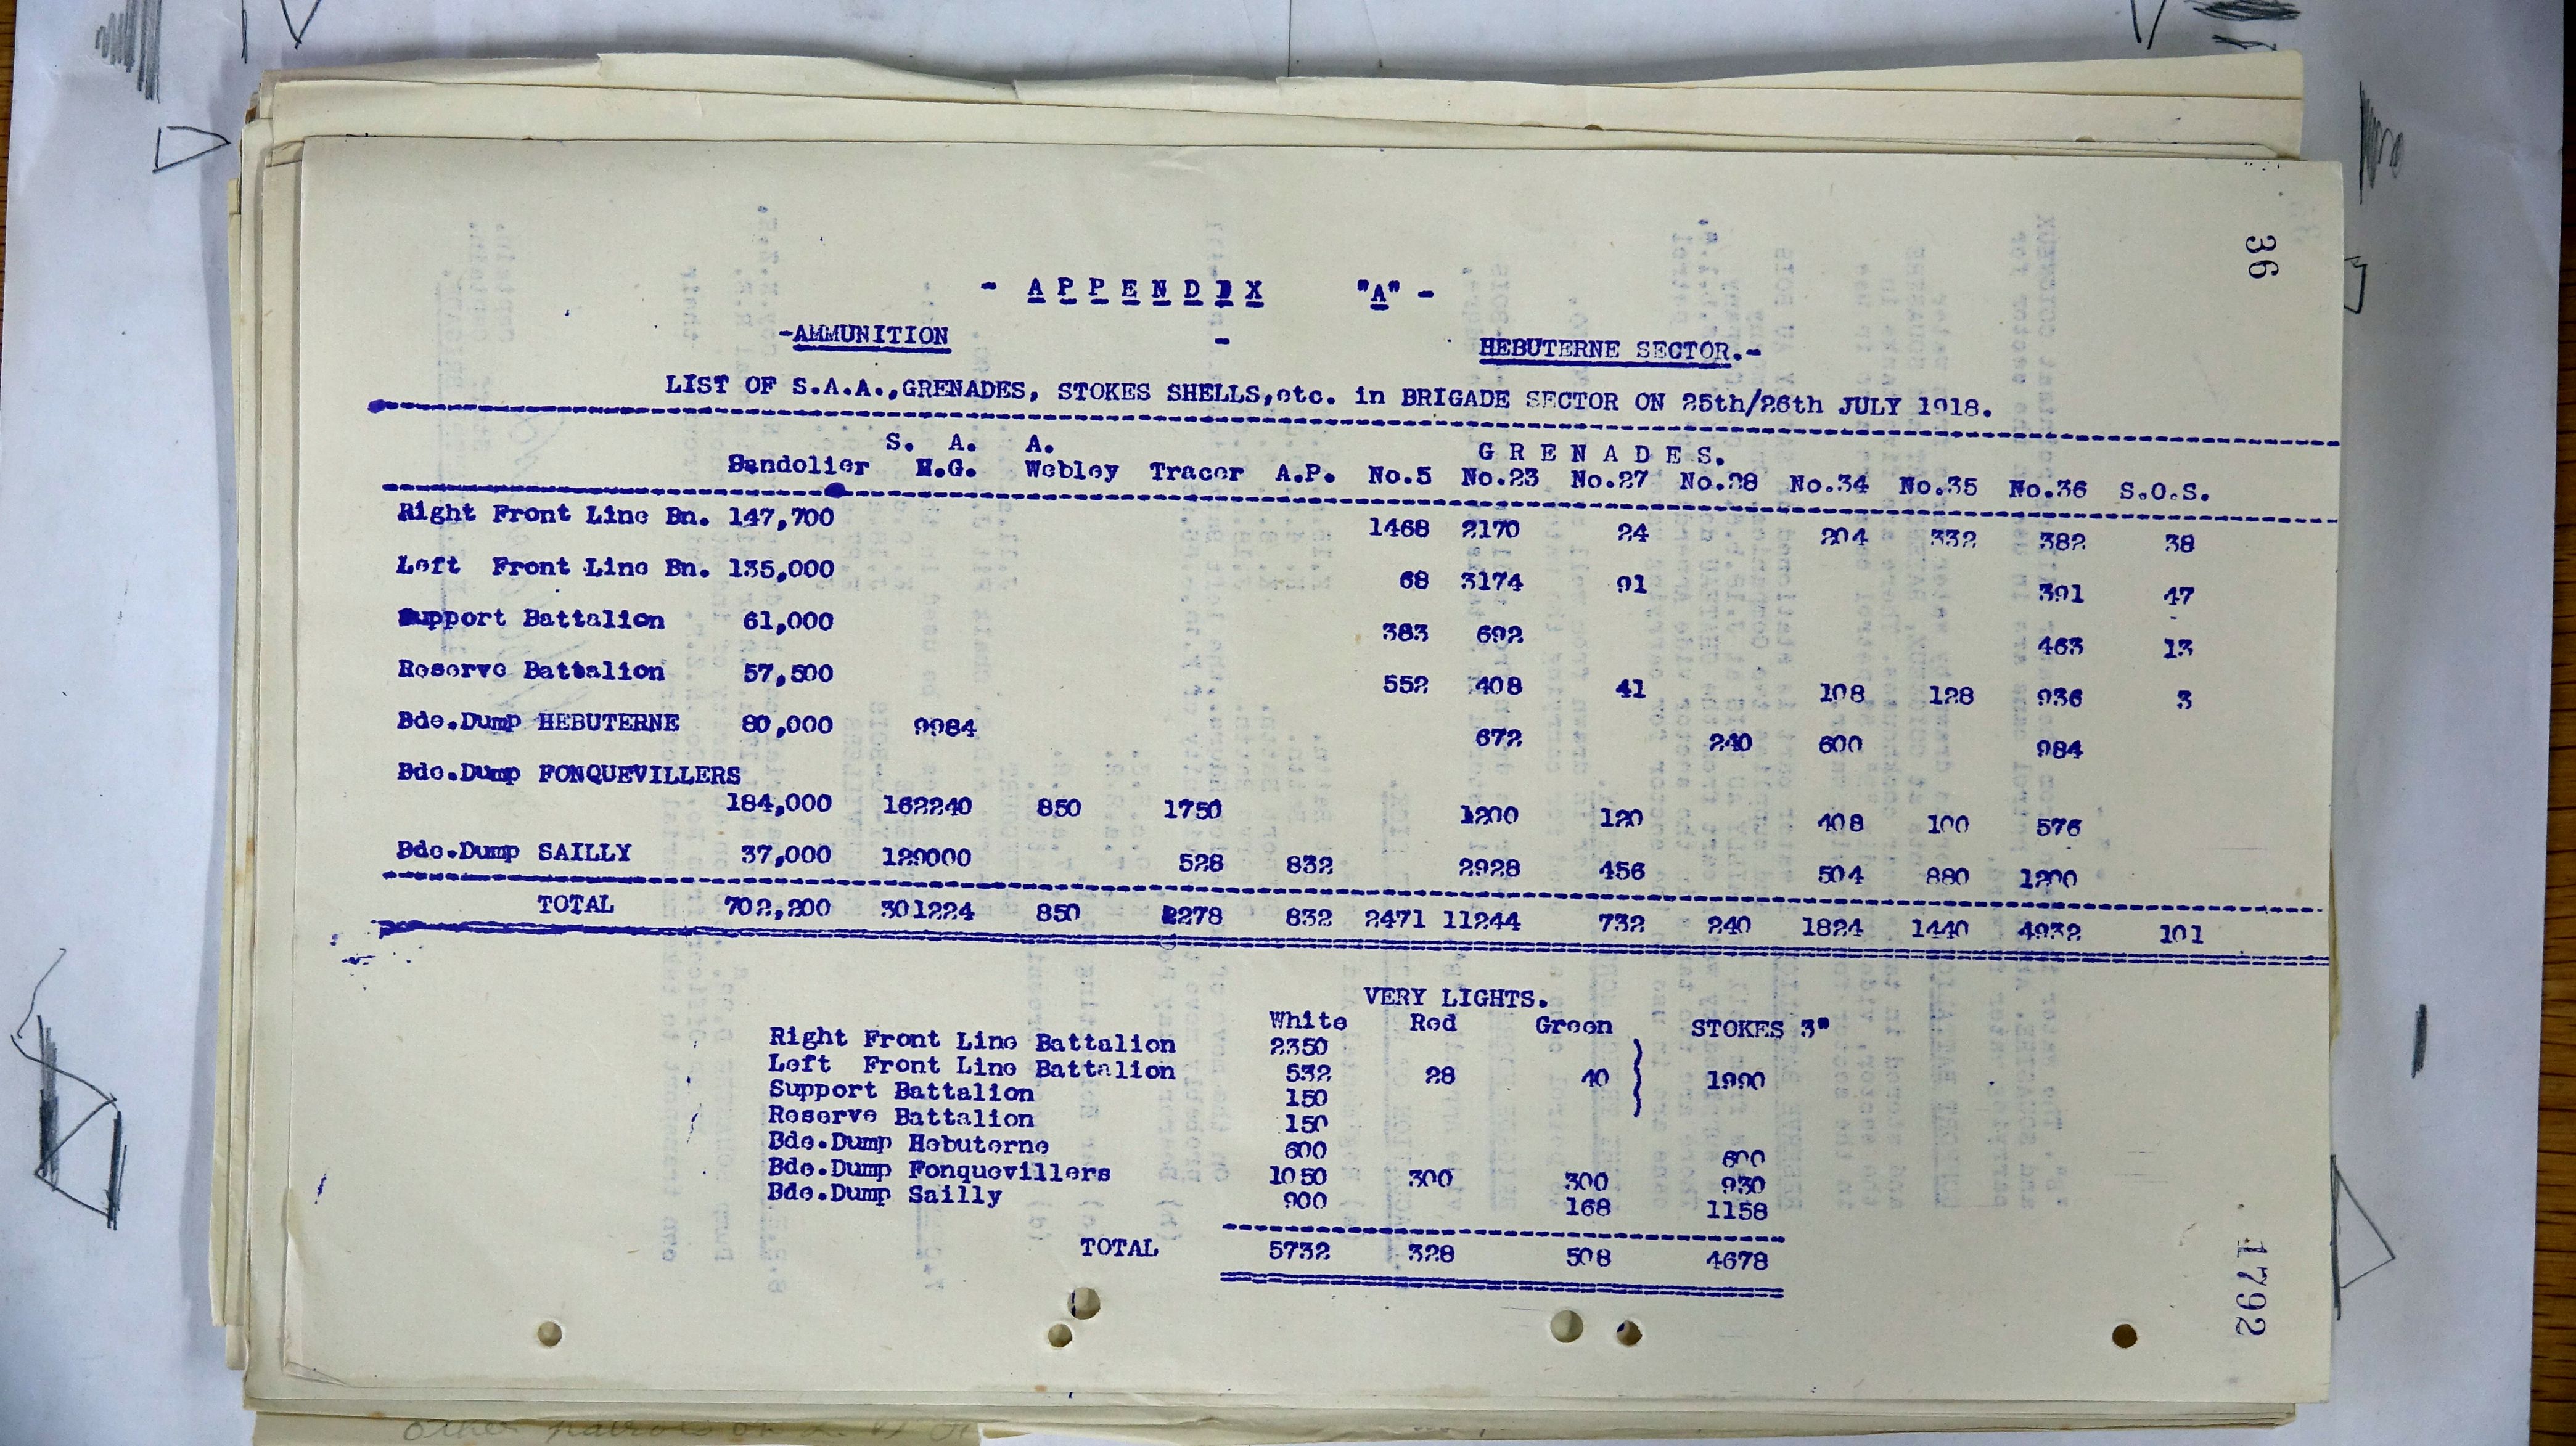 36
- APPENDIX "A" -
-AMMUNITION - HEBUTERNE SECTOR.-
LIST OF S.A.A.,GRENADES, STOKES SHELLS,etc. in BRIGADE SECTOR ON 25th/26th JULY 1918.
S. A. A. GRENADES.
Bandolier M.G. Webley Tracer A.P. No.5 No.23 No.27 No.28 No.34 No.35 No.36 S.O.S.
Right Front Line Bn. 147,700 1468 2170 24 204 332 382 38
Left Front Line Bn. 135,000 68 3174 91 391 47
Support Battalion 61,000 383 692 463 13
Reserve Battalion 57,500 552 408 41 108 128 936 3
Bde.Dump HEBUTERNE 80,000 9984 672 240 600 984
Bde.Dump FONQUEVILLERS
184,000 162240 850 1750 1200 120 408 100 576
Bde.Dump SAILLY 37,000 129000 528 832 2928 456 504 880 1200
TOTAL 702,200 301224 850 2278 832 2471 11244 732 240 1824 1440 4932 101
VERY LIGHTS.
White Red Green STOKES 3"
Right Front Line Battalion 2350
Left Front Line Battalion 532 28 40 1990
Support Battalion 150
Reserve Battalion 150
Bde.Dump Hebuterne 600 600
Bde.Dump Fonquevillers 1050 300 300 930
Bde.Dump Sailly 900 168 1158
TOTAL 5732 328 508 4678
1792